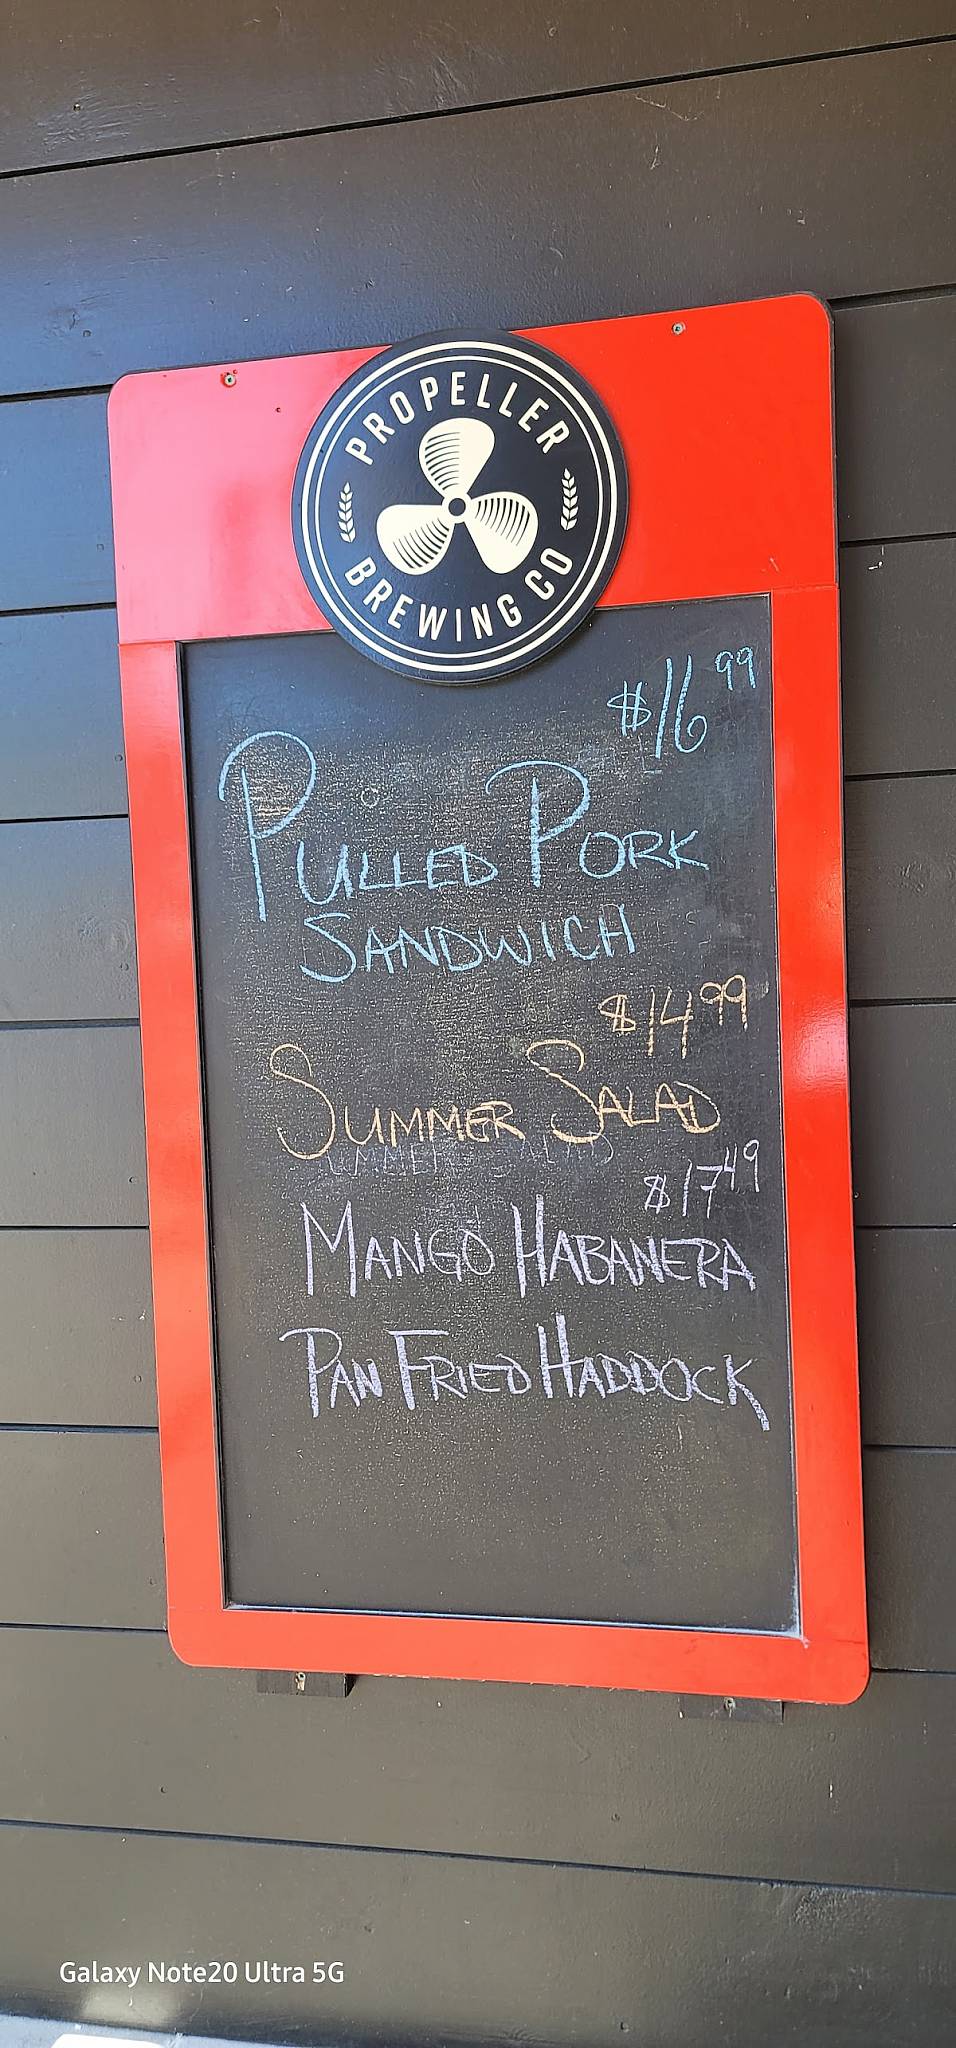 PROPELLER
BREWING CO
$16.99
PULLED PORK
SANDWICH
$14.99
SUMMER SALAD
$17.49
MANGO HABANERA
PAN FRIED HADDOCK
Galaxy Note20 Ultra 5G